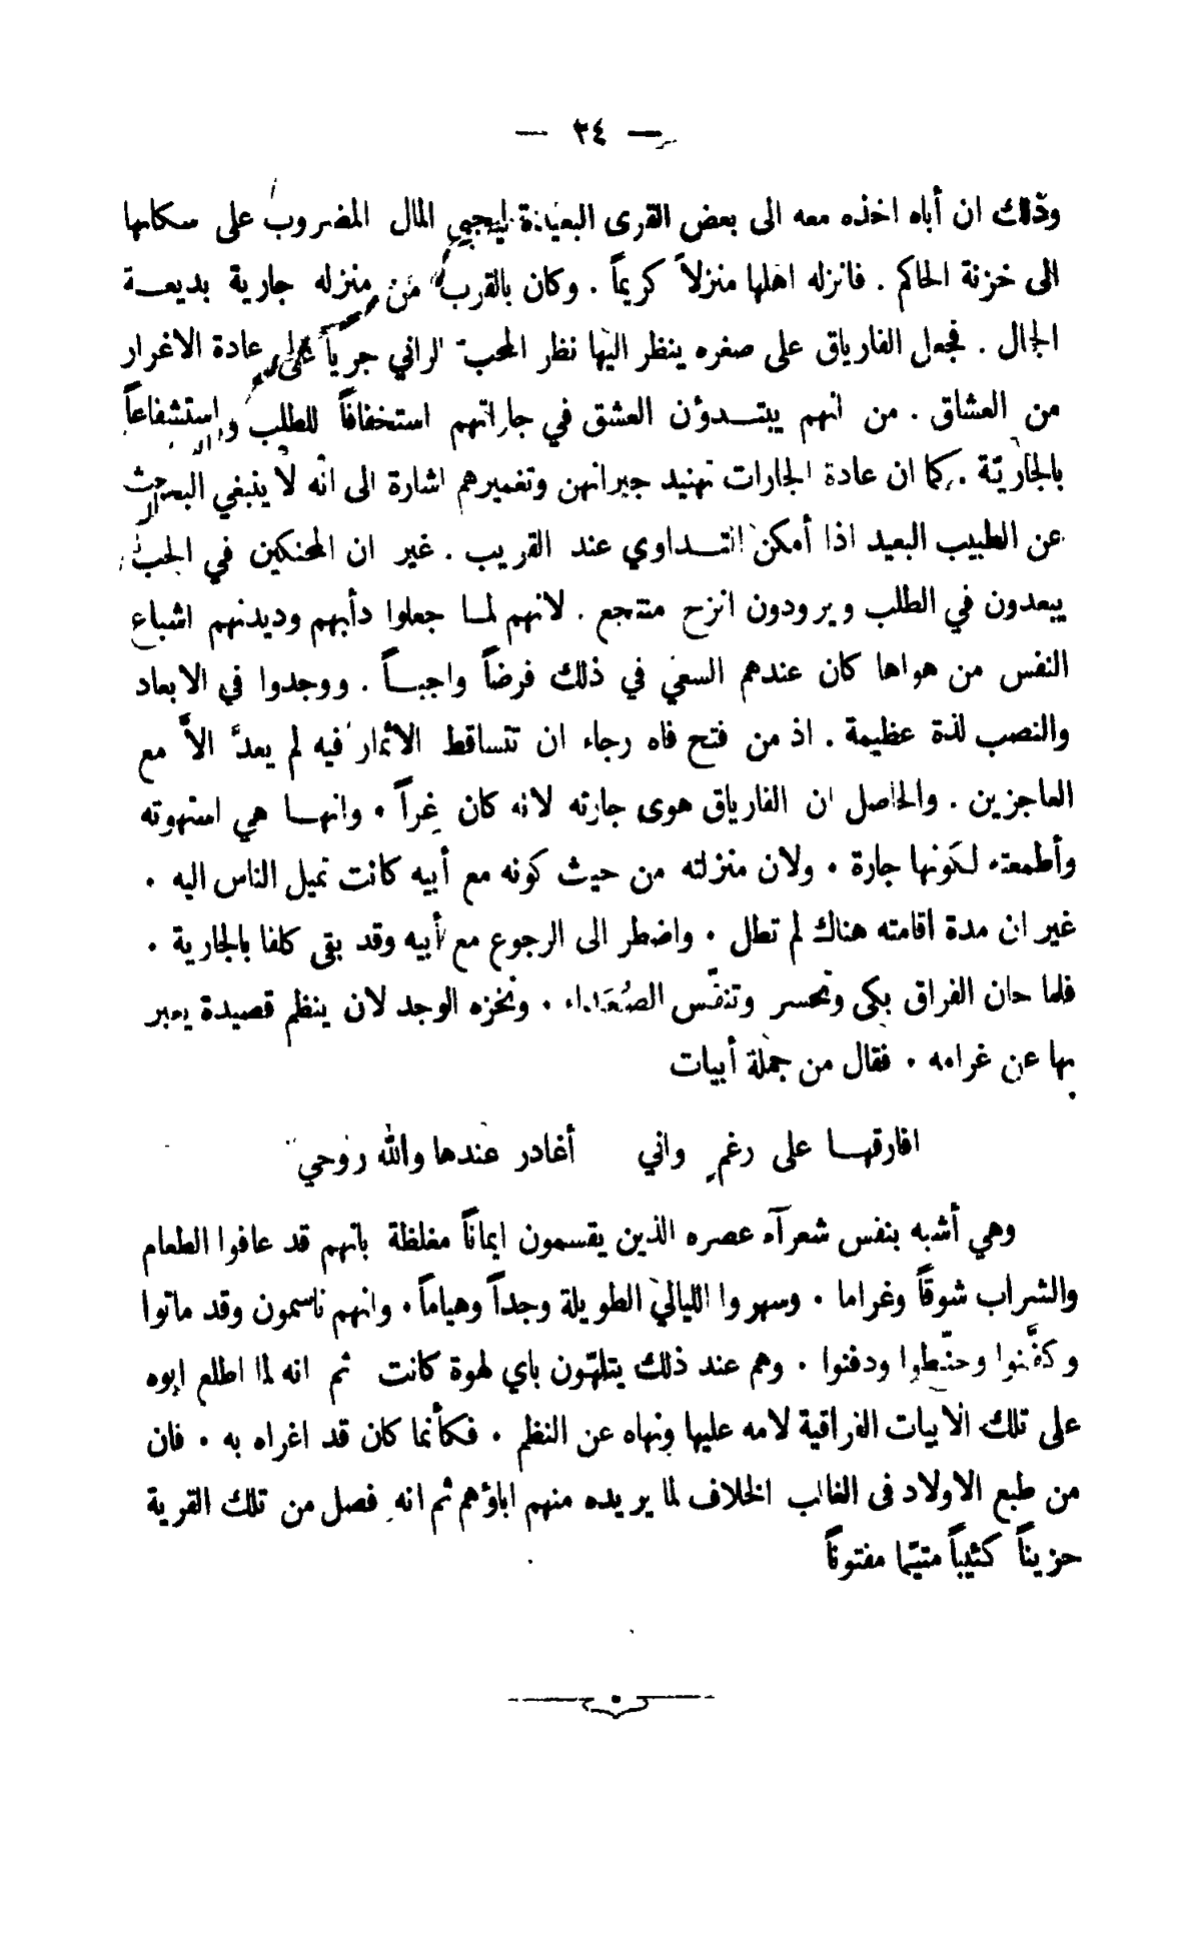 — ٣٤ —
وذلك ان أباه اخذه معه الى بعض القرى البعيدة ليجبي المال المضروب على سكانها
الى خزنة الحاكم . فانزله اهلها منزلاً كريماً . وكان بالقرب من منزله جارية بديعة
الجمال . فجعل الفارياق على صغره ينظر اليها نظر المحب الراني جرياً على عادة الاغرار
من العشاق . من انهم يبتدؤن العشق في جاراتهم استخفافاً للطلب واستشفاعاً
بالجاريّة . كما ان عادة الجارات تهنيد جيرانهن وتغميرهم اشارة الى انه لا ينبغي البحث
عن الطبيب البعيد اذا أمكن التداوي عند القريب . غير ان المحنكين في الحب
يبعدون في الطلب ويرودون انزح منتجع . لانهم لما جعلوا دأبهم وديدنهم اشباع
النفس من هواها كان عندهم السعي في ذلك فرضاً واجباً . ووجدوا في الابعاد
والنصب لذة عظيمة . اذ من فتح فاه رجاء ان تتساقط الاثمار فيه لم يعدَّ الاَّ مع
العاجزين . والحاصل ان الفارياق هوى جارته لانه كان غراً . وانها هي استهوته
وأطمعته لكونها جارة . ولان منزلته من حيث كونه مع أبيه كانت تميل الناس اليه .
غير ان مدة اقامته هناك لم تطل . واضطر الى الرجوع مع أبيه وقد بقى كلفا بالجارية .
فلما حان الفراق بكى وتحسر وتنفّس الصُعَداء . ونخزه الوجد لان ينظم قصيدة يعبر
بها عن غرامه . فقال من جملة أبيات
افارقها على رغم واني أغادر عندها والله روحي
وهي أشبه بنفس شعرآء عصره الذين يقسمون ايماناً مغلظة بانهم قد عافوا الطعام
والشراب شوقاً وغراما . وسهروا الليالي الطويلة وجداً وهياماً . وانهم ناسمون وقد ماتوا
وكفَّنوا وحنّطوا ودفنوا . وهم عند ذلك يتلهّون باي لهوة كانت ثم انه لما اطلع ابوه
على تلك الابيات الفراقية لامه عليها ونهاه عن النظم . فكأنما كان قد اغراه به . فان
من طبع الاولاد فى الغالب الخلاف لما يريده منهم اباؤهم ثم انه فصل من تلك القرية
حزيناً كئيباً متيّما مفتوناً